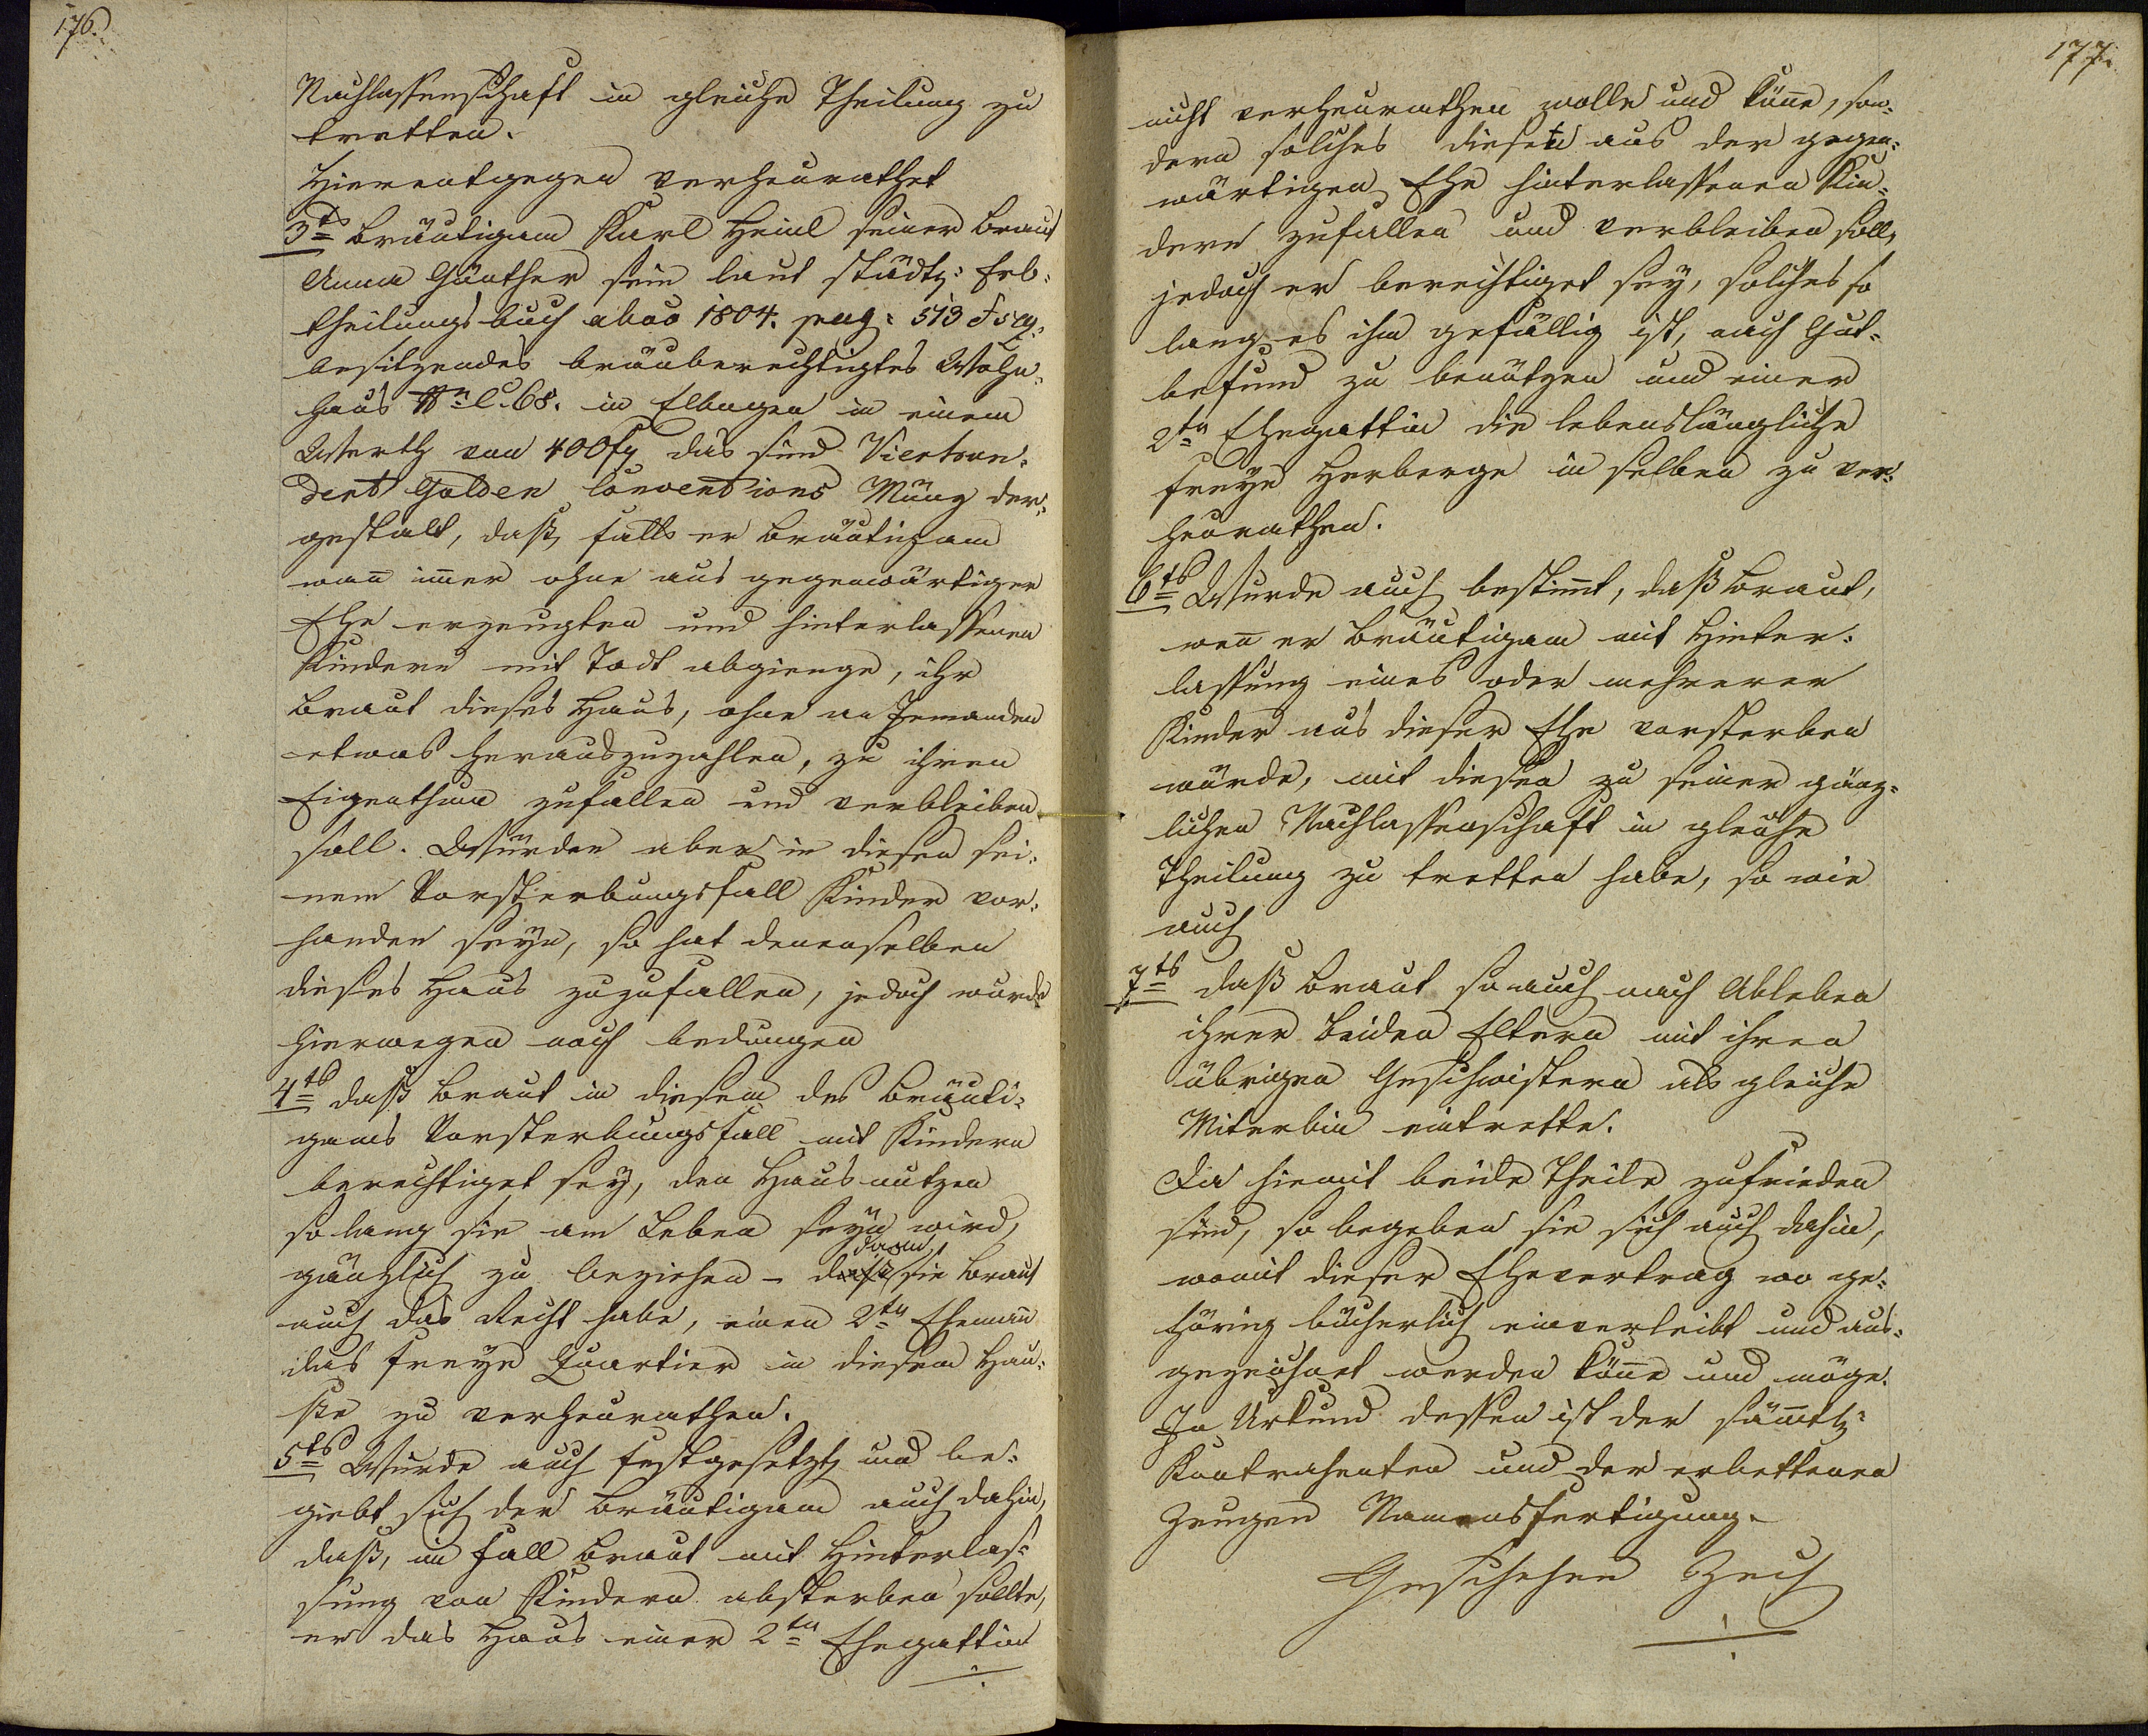 176.
Nachlassenschaft in gleiche Theilung zu
tretten.
Hierentgegen verheurathet
3ts Bräutigam Karl Heinl seiner Braut
Anna Günther sein laut städt: Erb¬
theilungsbuch abao 1804. pag: 513
besitzendes bräuberechtigtes Wohn¬
haus C. 68. in Elbogen in einem
Werth von 400 fl das sind Vierhun¬
dert Gulden Conventions Münz der¬
gestalt, daß, falls er Bräutigam
wan̄ im̄er ohne aus gegenwärtiger
Ehe erzeugten und hinterlassenen
Kindern mit Todt abgienge, ihr
Braut dieses Haus, ohne an Jemanden
etwas herauszuzahlen, zu ihren
Eigenthum zufallen und verbleiben
soll. Würden aber in diesen sei¬
nem Vorsterbungsfall Kinder vor¬
handen seyn, so hat denenselben
dieses Haus zuzufallen, jedoch wurde
hierwegen noch bedungen
4ts daß Braut in diesem des Bräuti¬
gams Vorsterbungsfall mit Kindern
berechtiget sey, den Hausnutzen
so lang sie am Leben seyn wird,
gänzlich zu beziehen – daß sie Braut
auch das Recht habe, einen 2ten Eheman̄
das freye Quartier in diesem Hau¬
se zu verheurathen.
5ts Wurde auch festgesetzt, und be¬
giebt sich der Bräutigam auch dahin,
daß, im Fall Braut mit Hinterlas¬
sung von Kindern absterben sollte,
er das Haus einer 2ten Ehegattin
177.
nicht verheurathen wolle und kön̄e, son¬
dern solches diesen aus der gegen¬
wärtigen Ehe hinterlassenen Kin¬
dern zufallen und verbleiben soll,
jedoch er berechtiget sey, solches so
lang es ihm gefällig ist, nach Gut¬
befund zu benützen und einer
2ten Ehegattin die lebenslängliche
freye Herberge in selben zu ver¬
heurathen.
6ts Wurde auch bestim̄t, daß Braut,
wen̄ er Bräutigam mit Hinter¬
lassung eines oder mehrerer
Kinder aus dieser Ehe vorsterben
würde, mit diesen zu seiner gänz¬
lichen Nachlassenschaft in gleiche
Theilung zu tretten habe, so wie
auch
7ts daß Braut so auch nach Ableben
ihrer beiden Eltern mit ihren
übrigen Geschwistern als gleiche
Miterbin eintrette.
Da hiemit beide Theile zufrieden
sind, so begeben sie sich auch dahin,
womit dieser Ehevertrag wo ge¬
hörig bücherlich einverleibt und aus¬
gezeichnet werden kön̄e und möge.
In Urkund dessen ist der säm̄tl:
Kontrahenten und der erbettenen
Zeugen Namensfertigung.
Geschehen Zech